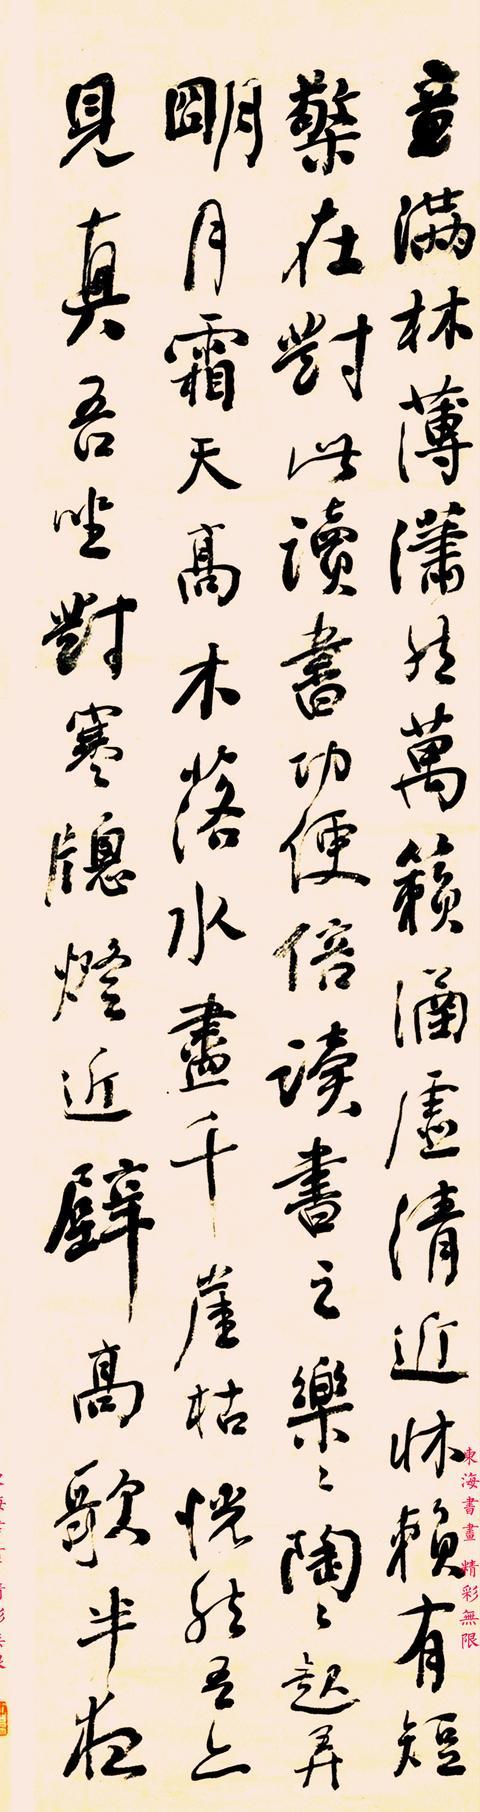 意滿林薄瀟然萬籟涵虛清近牀賴有短
檠在對此讀書功便倍讀書之樂〻陶〻起弄
朙月霜天高木落水盡千崖枯恍然吾亦
見真吾坐對寒牕燈近壁高歌半夜
東海書畫 精彩無限